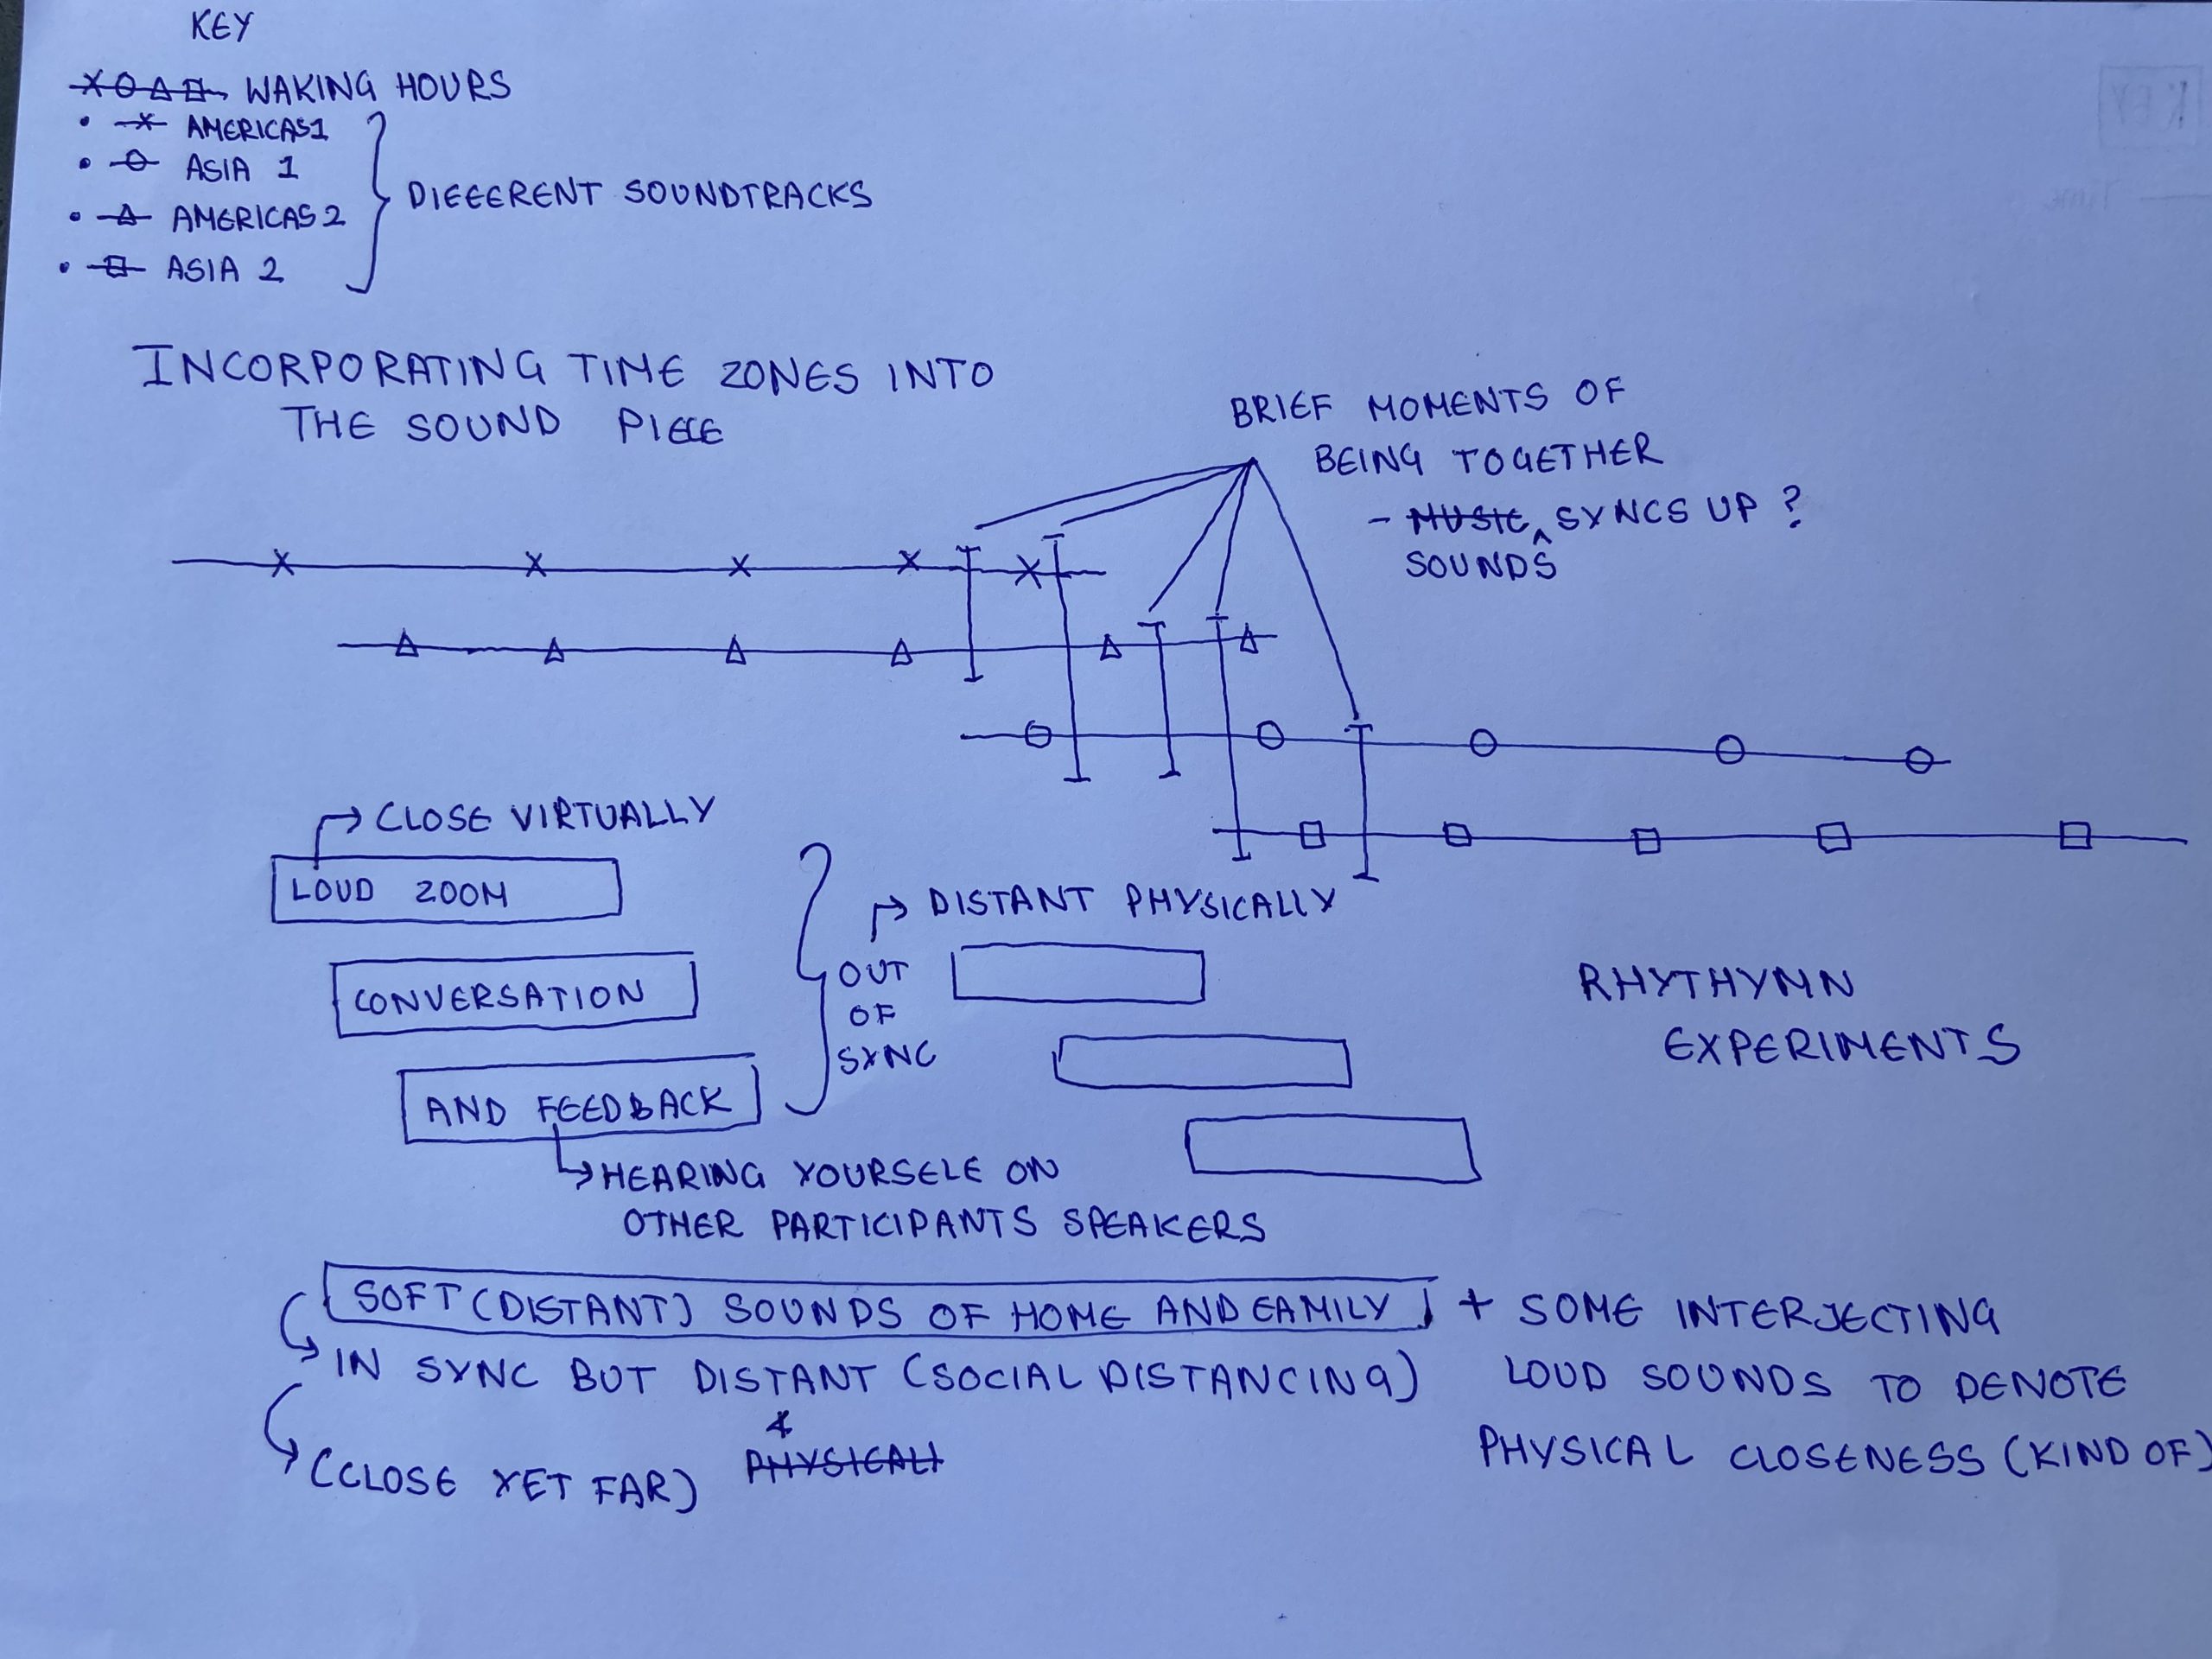 KEY
WAKING HOURS
• AMERICAS 1
• ASIA 1
• AMERICAS 2
• ASIA 2
DIFFERENT SOUNDTRACKS
INCORPORATING TIME ZONES INTO
THE SOUND PIECE
BRIEF MOMENTS OF
BEING TOGETHER
- MUSIC SYNCS UP ?
SOUNDS
CLOSE VIRTUALLY
LOUD ZOOM
CONVERSATION
AND FEEDBACK
HEARING YOURSELF ON
OTHER PARTICIPANTS SPEAKERS
OUT
OF
SYNC
DISTANT PHYSICALLY
RHYTHYMN
EXPERIMENTS
SOFT (DISTANT) SOUNDS OF HOME AND FAMILY
IN SYNC BUT DISTANT (SOCIAL DISTANCING)
&
(CLOSE YET FAR) PHYSICALL
+ SOME INTERJECTING
LOUD SOUNDS TO DENOTE
PHYSICAL CLOSENESS (KIND OF)
KEY
Time